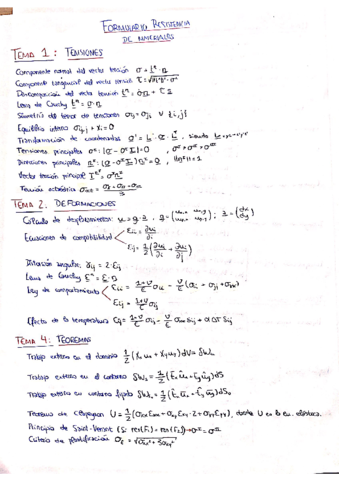 FORMULARIO RESISTENCIA
DE MATERIALES
TEMA 1: TENSIONES
Componente normal del vector tensión σ = t^n · n
Componente tangencial del vector tensión τ = √|t^n|² - σ²
Descomposición del vector tensión t^n = σn + τ
Lema de Cauchy t^n = σ · n
Simetría del tensor de tensiones σij = σji ∀ {i,j}
Equilibrio interno σij,j + Xi = 0
Transformación de coordenadas σ' = L · σ · L^T, siendo
Tensiones principales σ^α: |σ - σ^α I| = 0, σ^I > σ^II > σ^III
Direcciones principales n^α: (σ - σ^α I) n^α = 0, |n^α| = 1
Vector tensión principal T^α = σ^α n^α
Tensión octaédrica
TEMA 2: DEFORMACIONES
Cálculo de desplazamientos:
Ecuaciones de compatibilidad { εii = ∂ui/∂i
εij = 1/2 (∂ui/∂j + ∂uj/∂i)
Distorsión angular: γij = 2 · εij
Lema de Cauchy E^n = E · n
Ley de comportamiento { εii = (1+ν)/E σii - ν/E (σii + σjj + σkk)
εij = (1+ν)/E σij
Efecto de la temperatura εij = (1+ν)/E σij - ν/E σkk δij + α ΔT δij
TEMA 4: TEOREMAS
Trabajo externo en el dominio
Trabajo externo en el contorno
Trabajo externo en contorno fijado
Teorema de Clapeyron U = 1/2 (σxx εxx + σxy εxy · 2 + σyy εyy), donde U es la en. elástica.
Principio de Saint-Venant
Criterio de plastificación